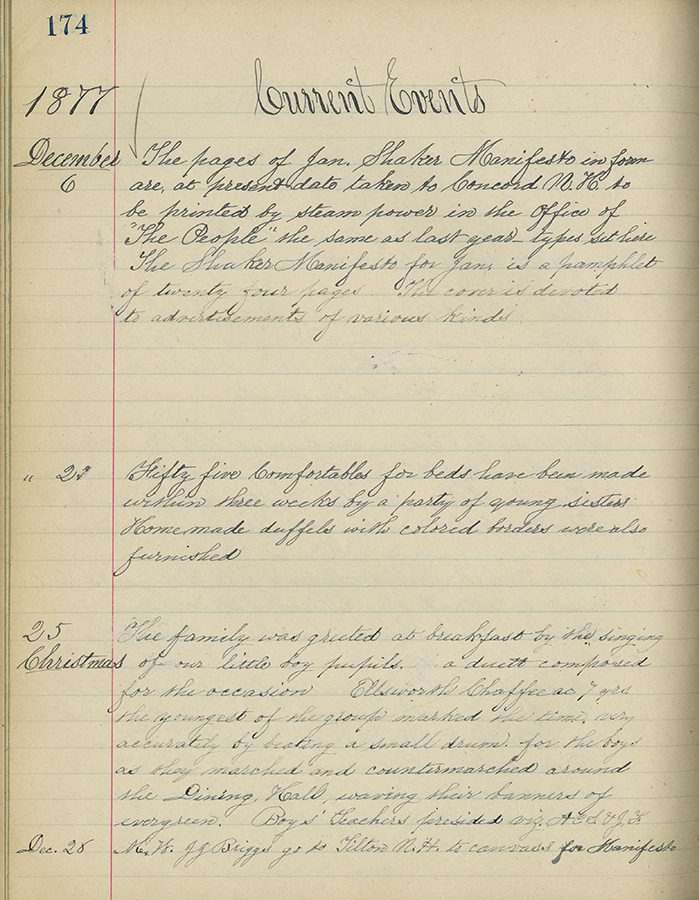 174
Current Events
1877
December The pages of Jan. Shaker Manifesto in form
6 are, at present date taken to Concord N.H. to
be printed by steam power in the Office of
"The People" the same as last year types set here
The Shaker Manifesto for Jan. is a pamphlet
of twenty four pages The cover is devoted
to advertisements of various kinds
" Fifty five Comfortables for beds have been made
within three weeks by a party of young sisters
Home made duffels with colored borders were also
furnished
25 The family was greeted at breakfast by the singing
Christmas of our little boy pupils. a duett composed
for the occasion Ellsworth Chaffee ae 7 yrs
the youngest of the group marked the time, very
accurately by beating a small drum. for the boys
as they marched and countermarched around
the Dining Hall, waving their banners of
evergreen. Boys' Teachers presided viz.
Dec. J G Briggs go to Tilton N.H. to canvass for Manifesto